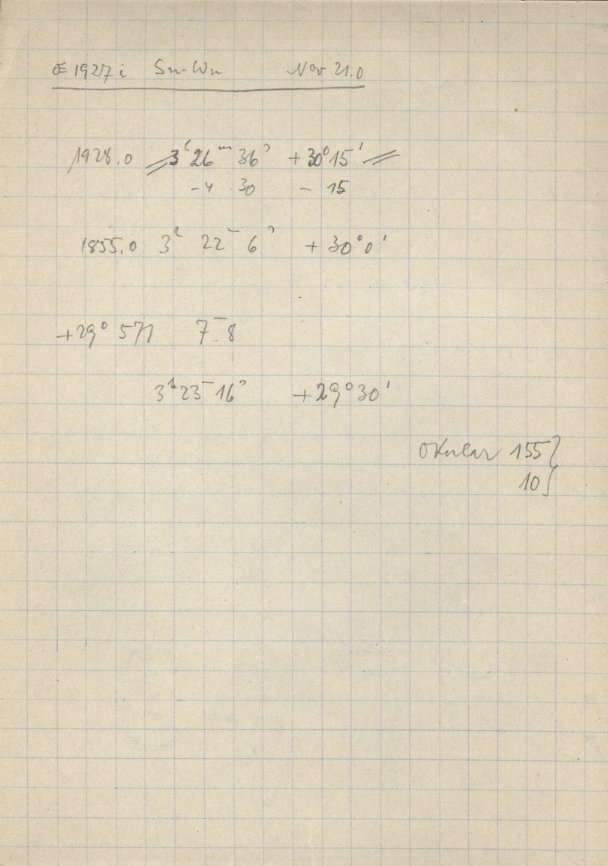 1927 i Sw-Wa Nov 21.0
1928.0 3ʰ 26ᵐ 36ˢ +30° 15'
-4 30 - 15
1855.0 3ʰ 22ᵐ 6ˢ +30° 0'
+29° 571 7ᵐ.8
3ʰ 23ᵐ 16ˢ +29° 30'
Okular 155
10